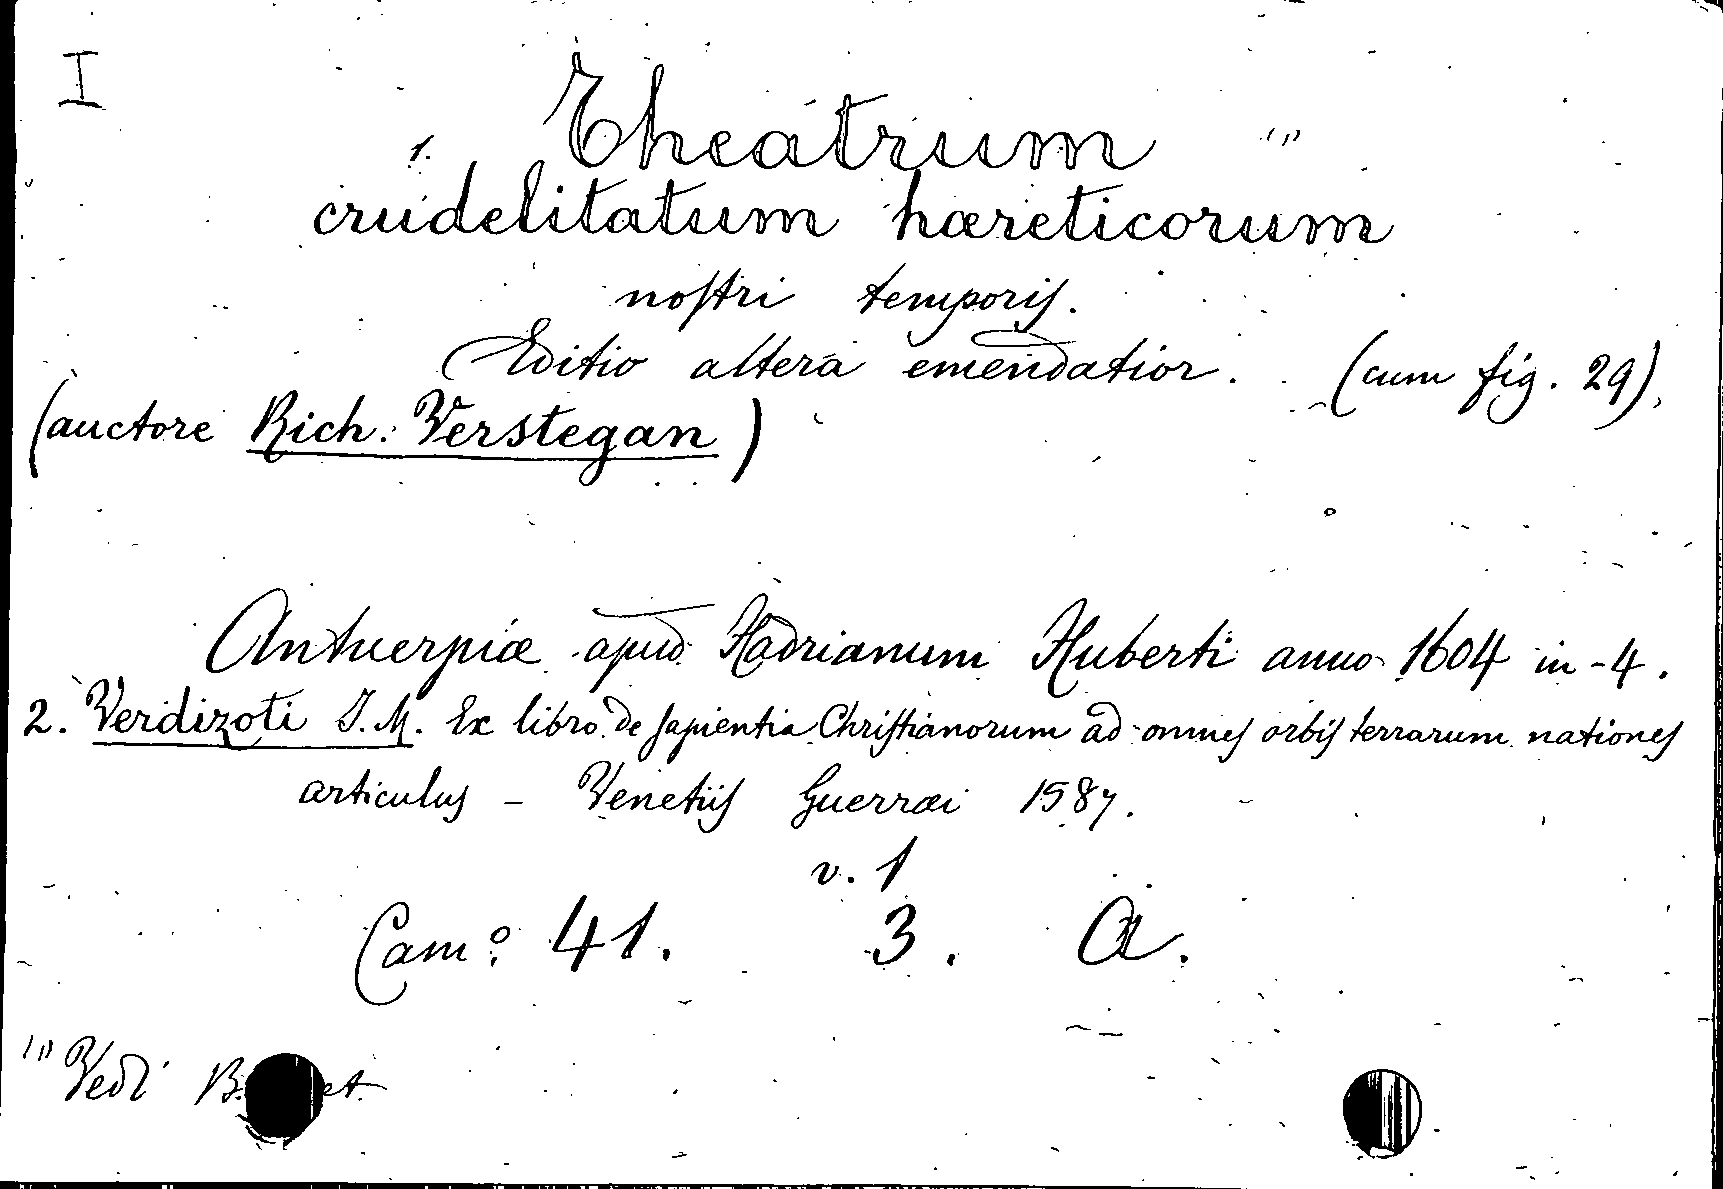 I
1. Theatrum (1)
crudelitatum hæreticorum
nostri temporis.
Editio altera emendatior. (cum fig. 29).
(auctore Rich. Verstegan)
Antuerpiæ apud Hadrianum Huberti anno 1604 in-4.
2. Verdizoti I. M. Ex libro de sapientia Christianorum ad omnes orbis terrarum nationes
articulus - Venetiis Guerræi 1587.
v. 1
Camº. 41. 3. A.
(1) Vedi